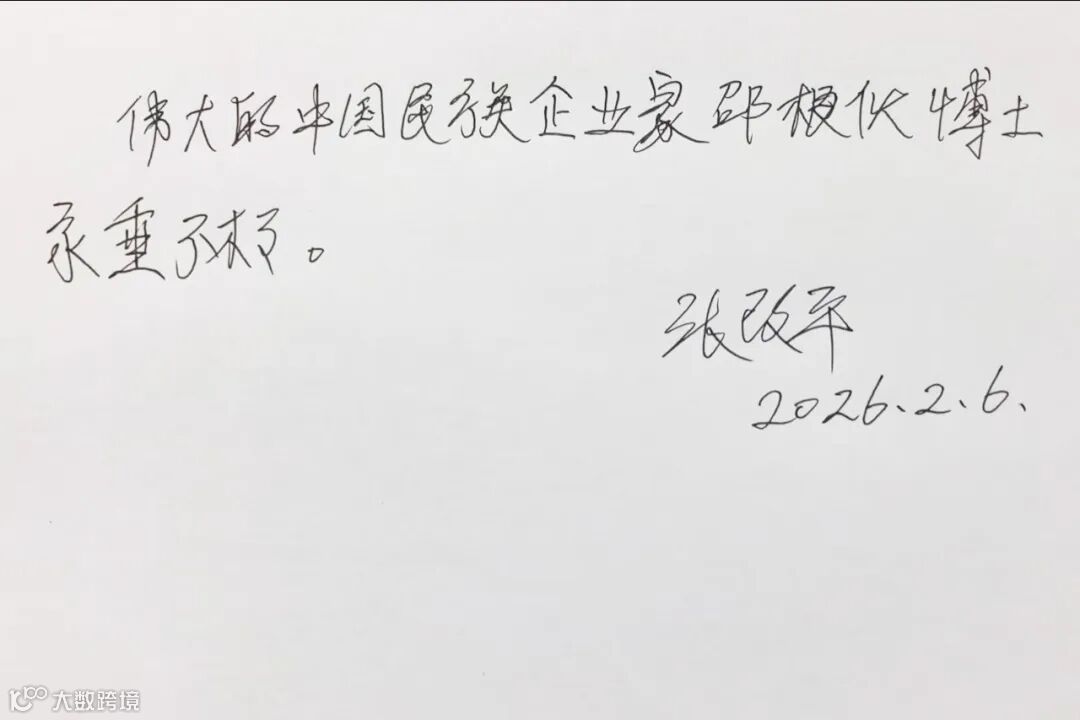 伟大的中国民族企业家邵根伙博士
永垂不朽。
张改平
2026.2.6.
大数跨境